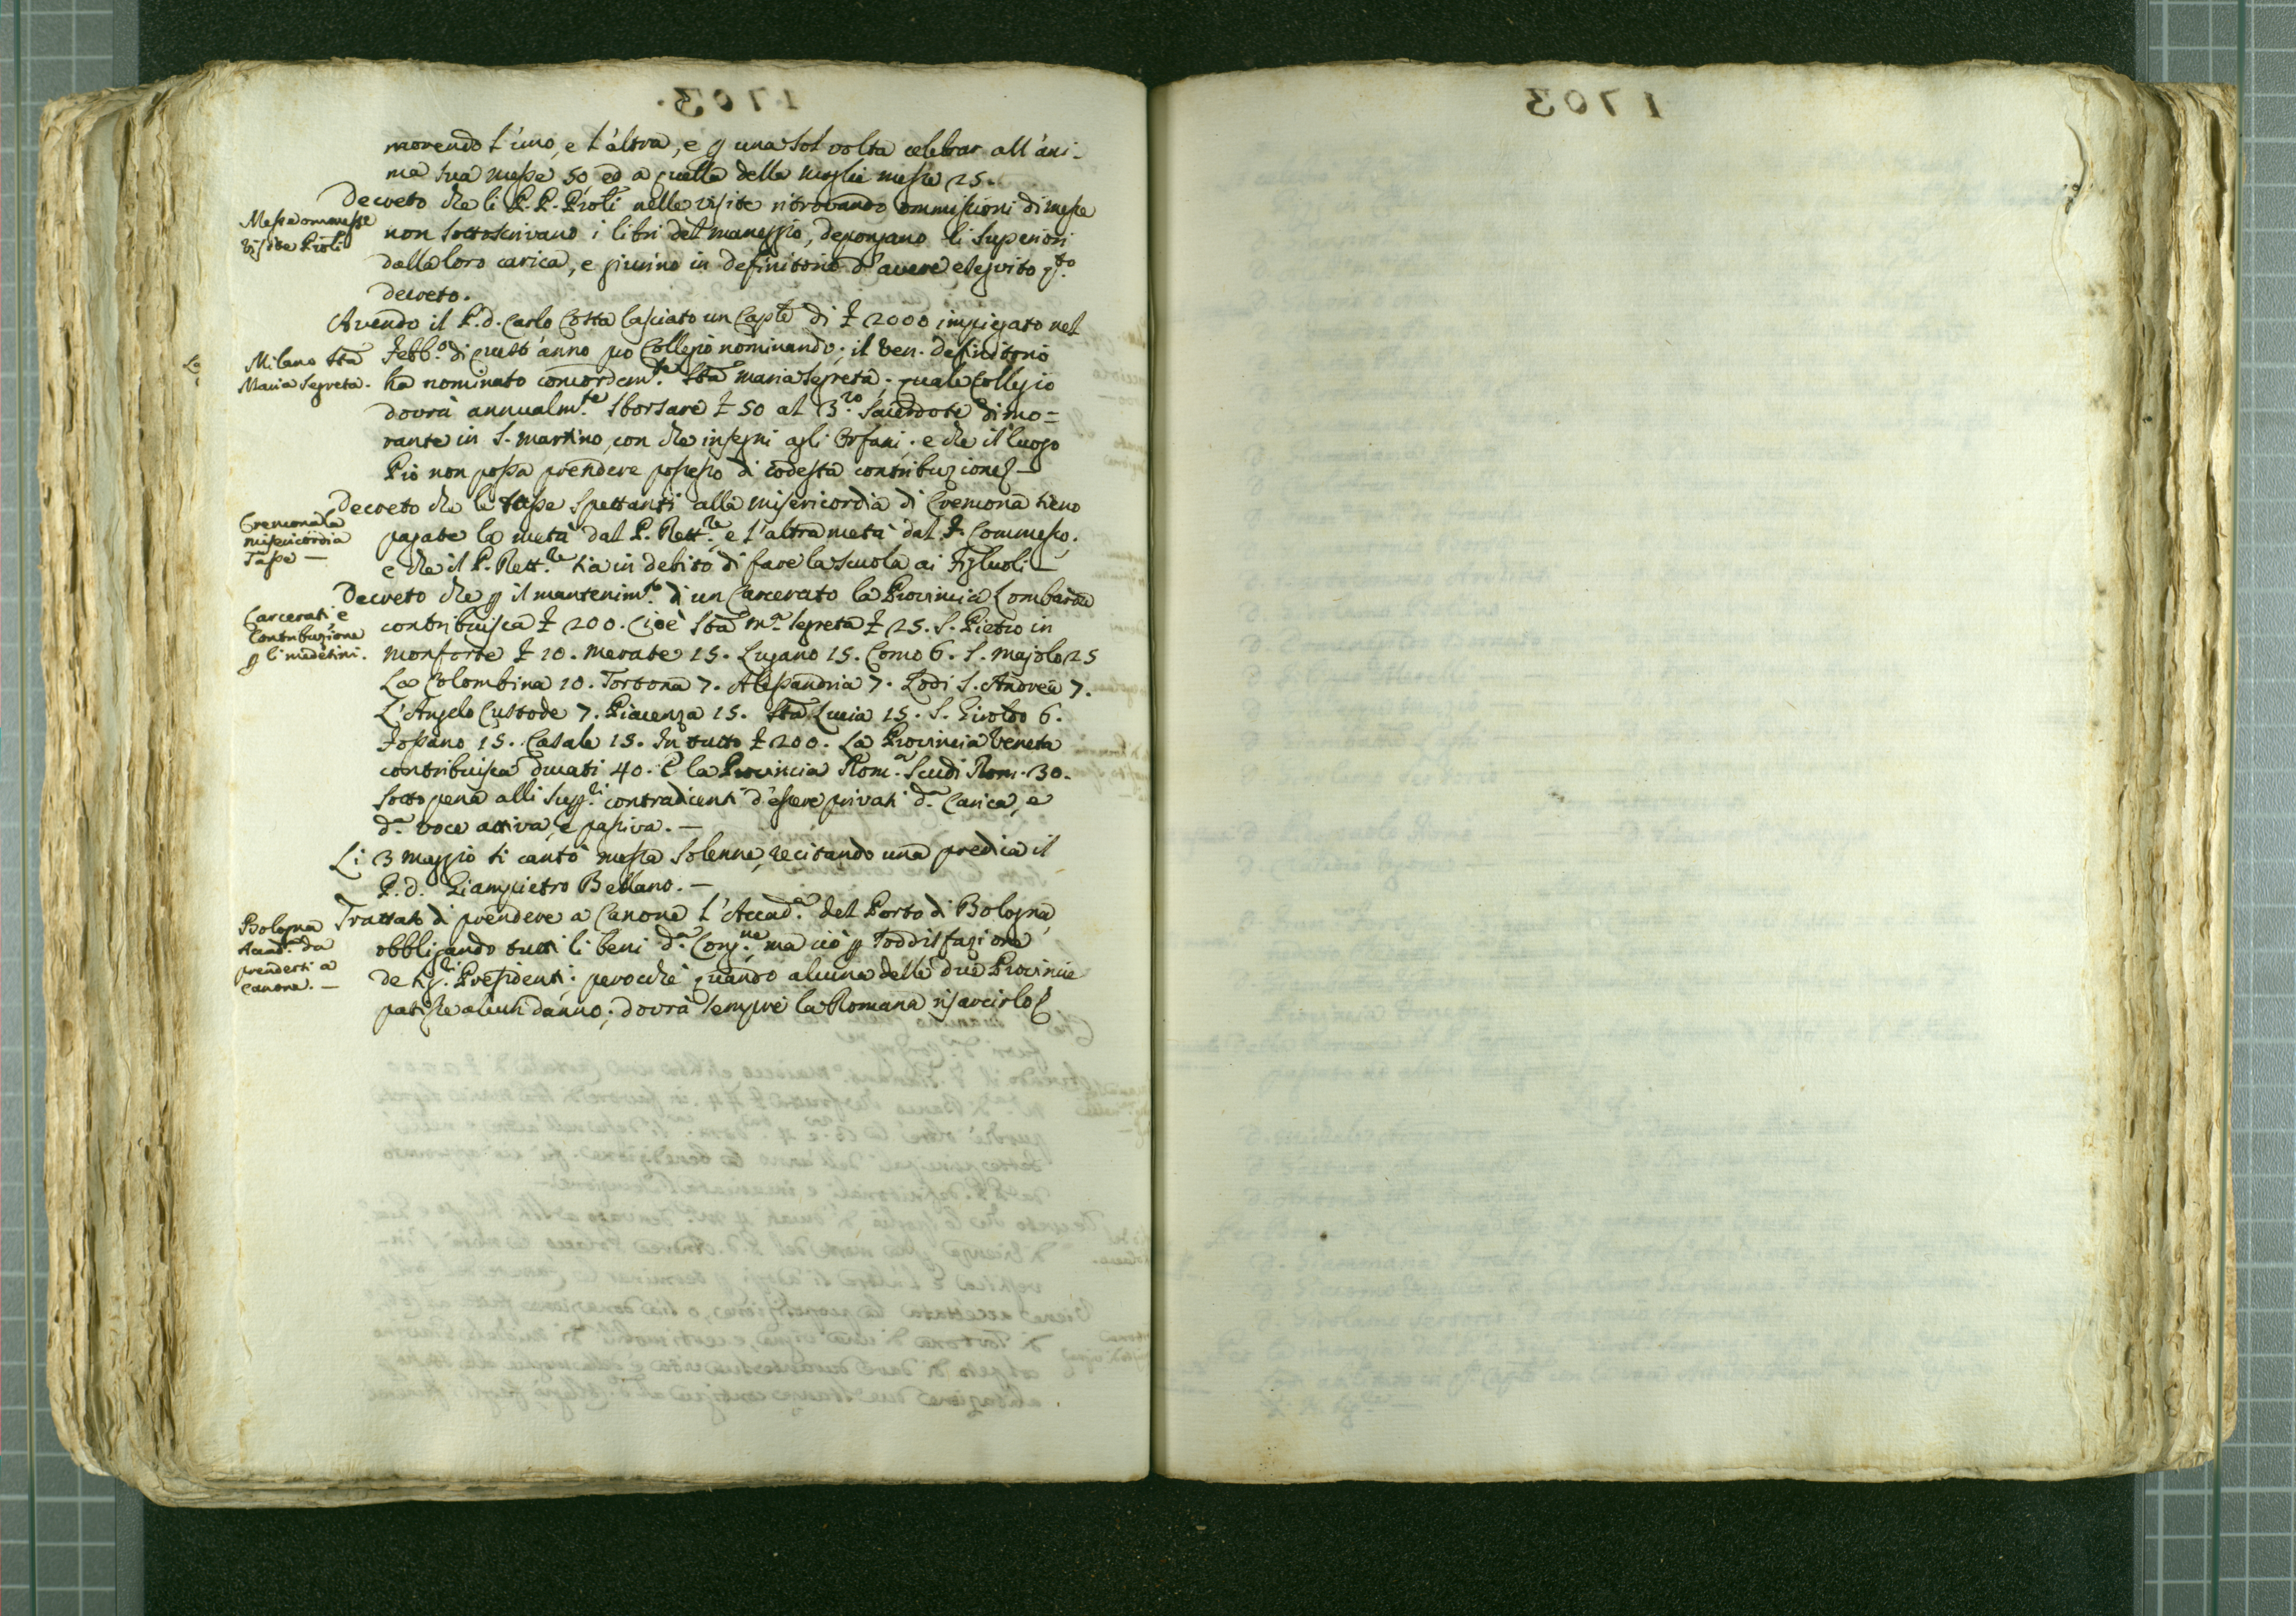 1703.
morendo l'uno, e l'altra, e p una sol volta celebrar all'ani-
ma sua messe 50 ed a quella della moglie messe 25.
Decreto che li P.P. Pröli nelle visite ritrovando ommissioni di messe
Messe ommesse
Visite Pröli
non sottoscrivano i libri del maneggio, depongano li Superiori
dalla loro carica, e giurino in definitorio d'avere eseguito q.to
decreto.
Avendo il P. d. Carlo Costa lasciato un Caple di £ 2000 impiegato nel
Febb.o di quest'anno pro Collegio nominando; il Ven. definitorio
Milano Sta
Maria Segreta.
ha nominato concordem.te Sta Maria Segreta; quale Collegio
dovrà annualm.te sborsare £ 50 al 3.zo Sacerdote dimo=
rante in S. Martino, con che insegni agli Orfani. e che il luogo
Pio non possa prendere possesso di codesta contribuzione
Decreto che le tasse spettanti alla misericordia di Cremona sieno
Cremona la
misericordia
Tasse —
pagate la metà dal P. Rett.re e l'altra metà dal F. Commesso.
e che il P. Rett.re sia in debito di fare la scuola ai Figluoli —
Decreto che p il mantenim.to di un Carcerato la Provincia Lombarda
Carcerati, e
Contribuzione
p li medesimi.
contribuisca £ 200. Cioè Sta M.a Segreta £ 25. S. Pietro in
Monforte £ 10. Merate 15. Lugano 15. Como 6. S. Majolo 25
La Colombina 10. Tortona 7. Alessandria 7. Lodi S. Andrea 7.
L'Angelo Custode 7. Piacenza 15. Sta Lucia 15. S. Giroldo 6.
Fossano 15. Casale 15. In tutto £ 200. La Provincia Veneta
contribuisca ducati 40. E la Provincia Rom.a Scudi Rom. 30.
Sotto pena alli Supp.ri contradicenti d'essere privati d.a Carica, e
d.a voce attiva, e passiva. —
Li 3 Maggio si cantò messa Solenne, recitando una predica il
P. d. Giampietro Bellano. —
Trattati di prendere a Canone l'Accad.a del Porto di Bologna,
Bologna
Accad.a da
prendersi a
Canone. —
obbligando tutti li beni d.a Cong.ne ma ciò p soddisfazione
de sig.ri Presidenti: perocchè quando alcuna delle due Provincie
patisse alcun danno, dovrà sempre la Romana risarcirlo
1703